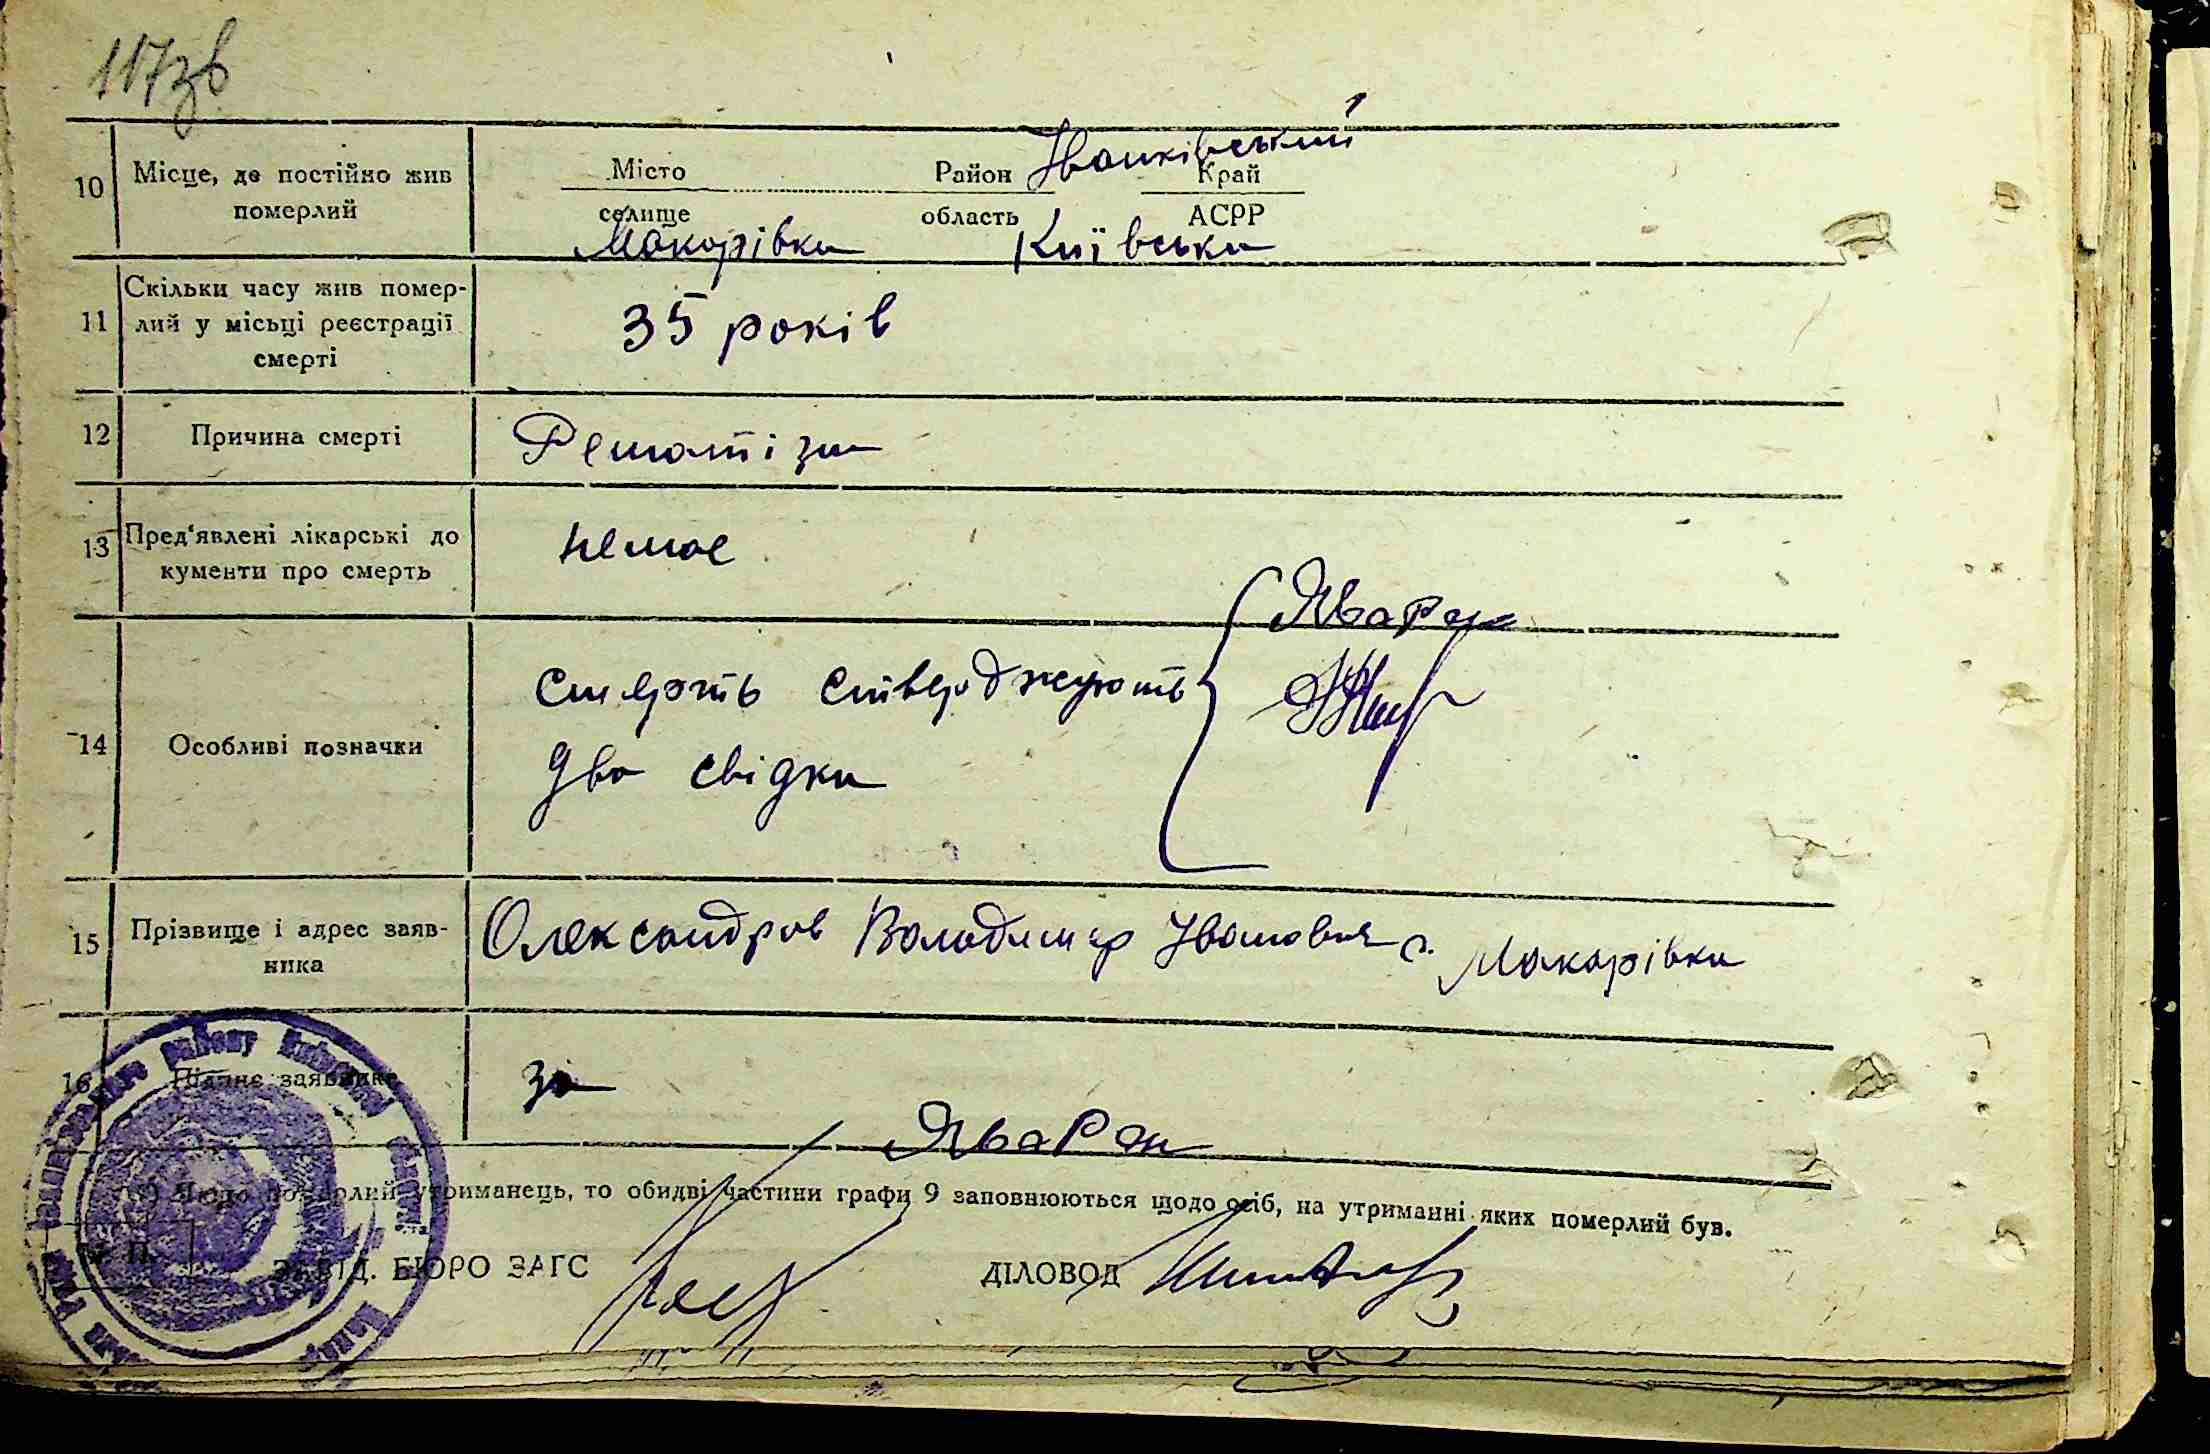 117зв
10 Місце, де постійно жив померлий
Місто Район Іванківський Край
селище область АСРР
Макарівка Київська
11 Скільки часу жив помер-
лий у місьці реєстрації
смерті
35 років
12 Причина смерті Ревматізм
13 Пред'явлені лікарські до
кументи про смерть
немає
14 Особливі позначки
смерть стверджують
два свідки
15 Прізвище і адрес заяв-
ника
Олександров Володимир Іванович с. Макарівка
16 Підпис заявника
за
утриманець, то обидві частини графи 9 заповнюються щодо осіб, на утриманні яких померлий був.
М. П.
ЗАВІД. БЮРО ЗАГС ДІЛОВОД